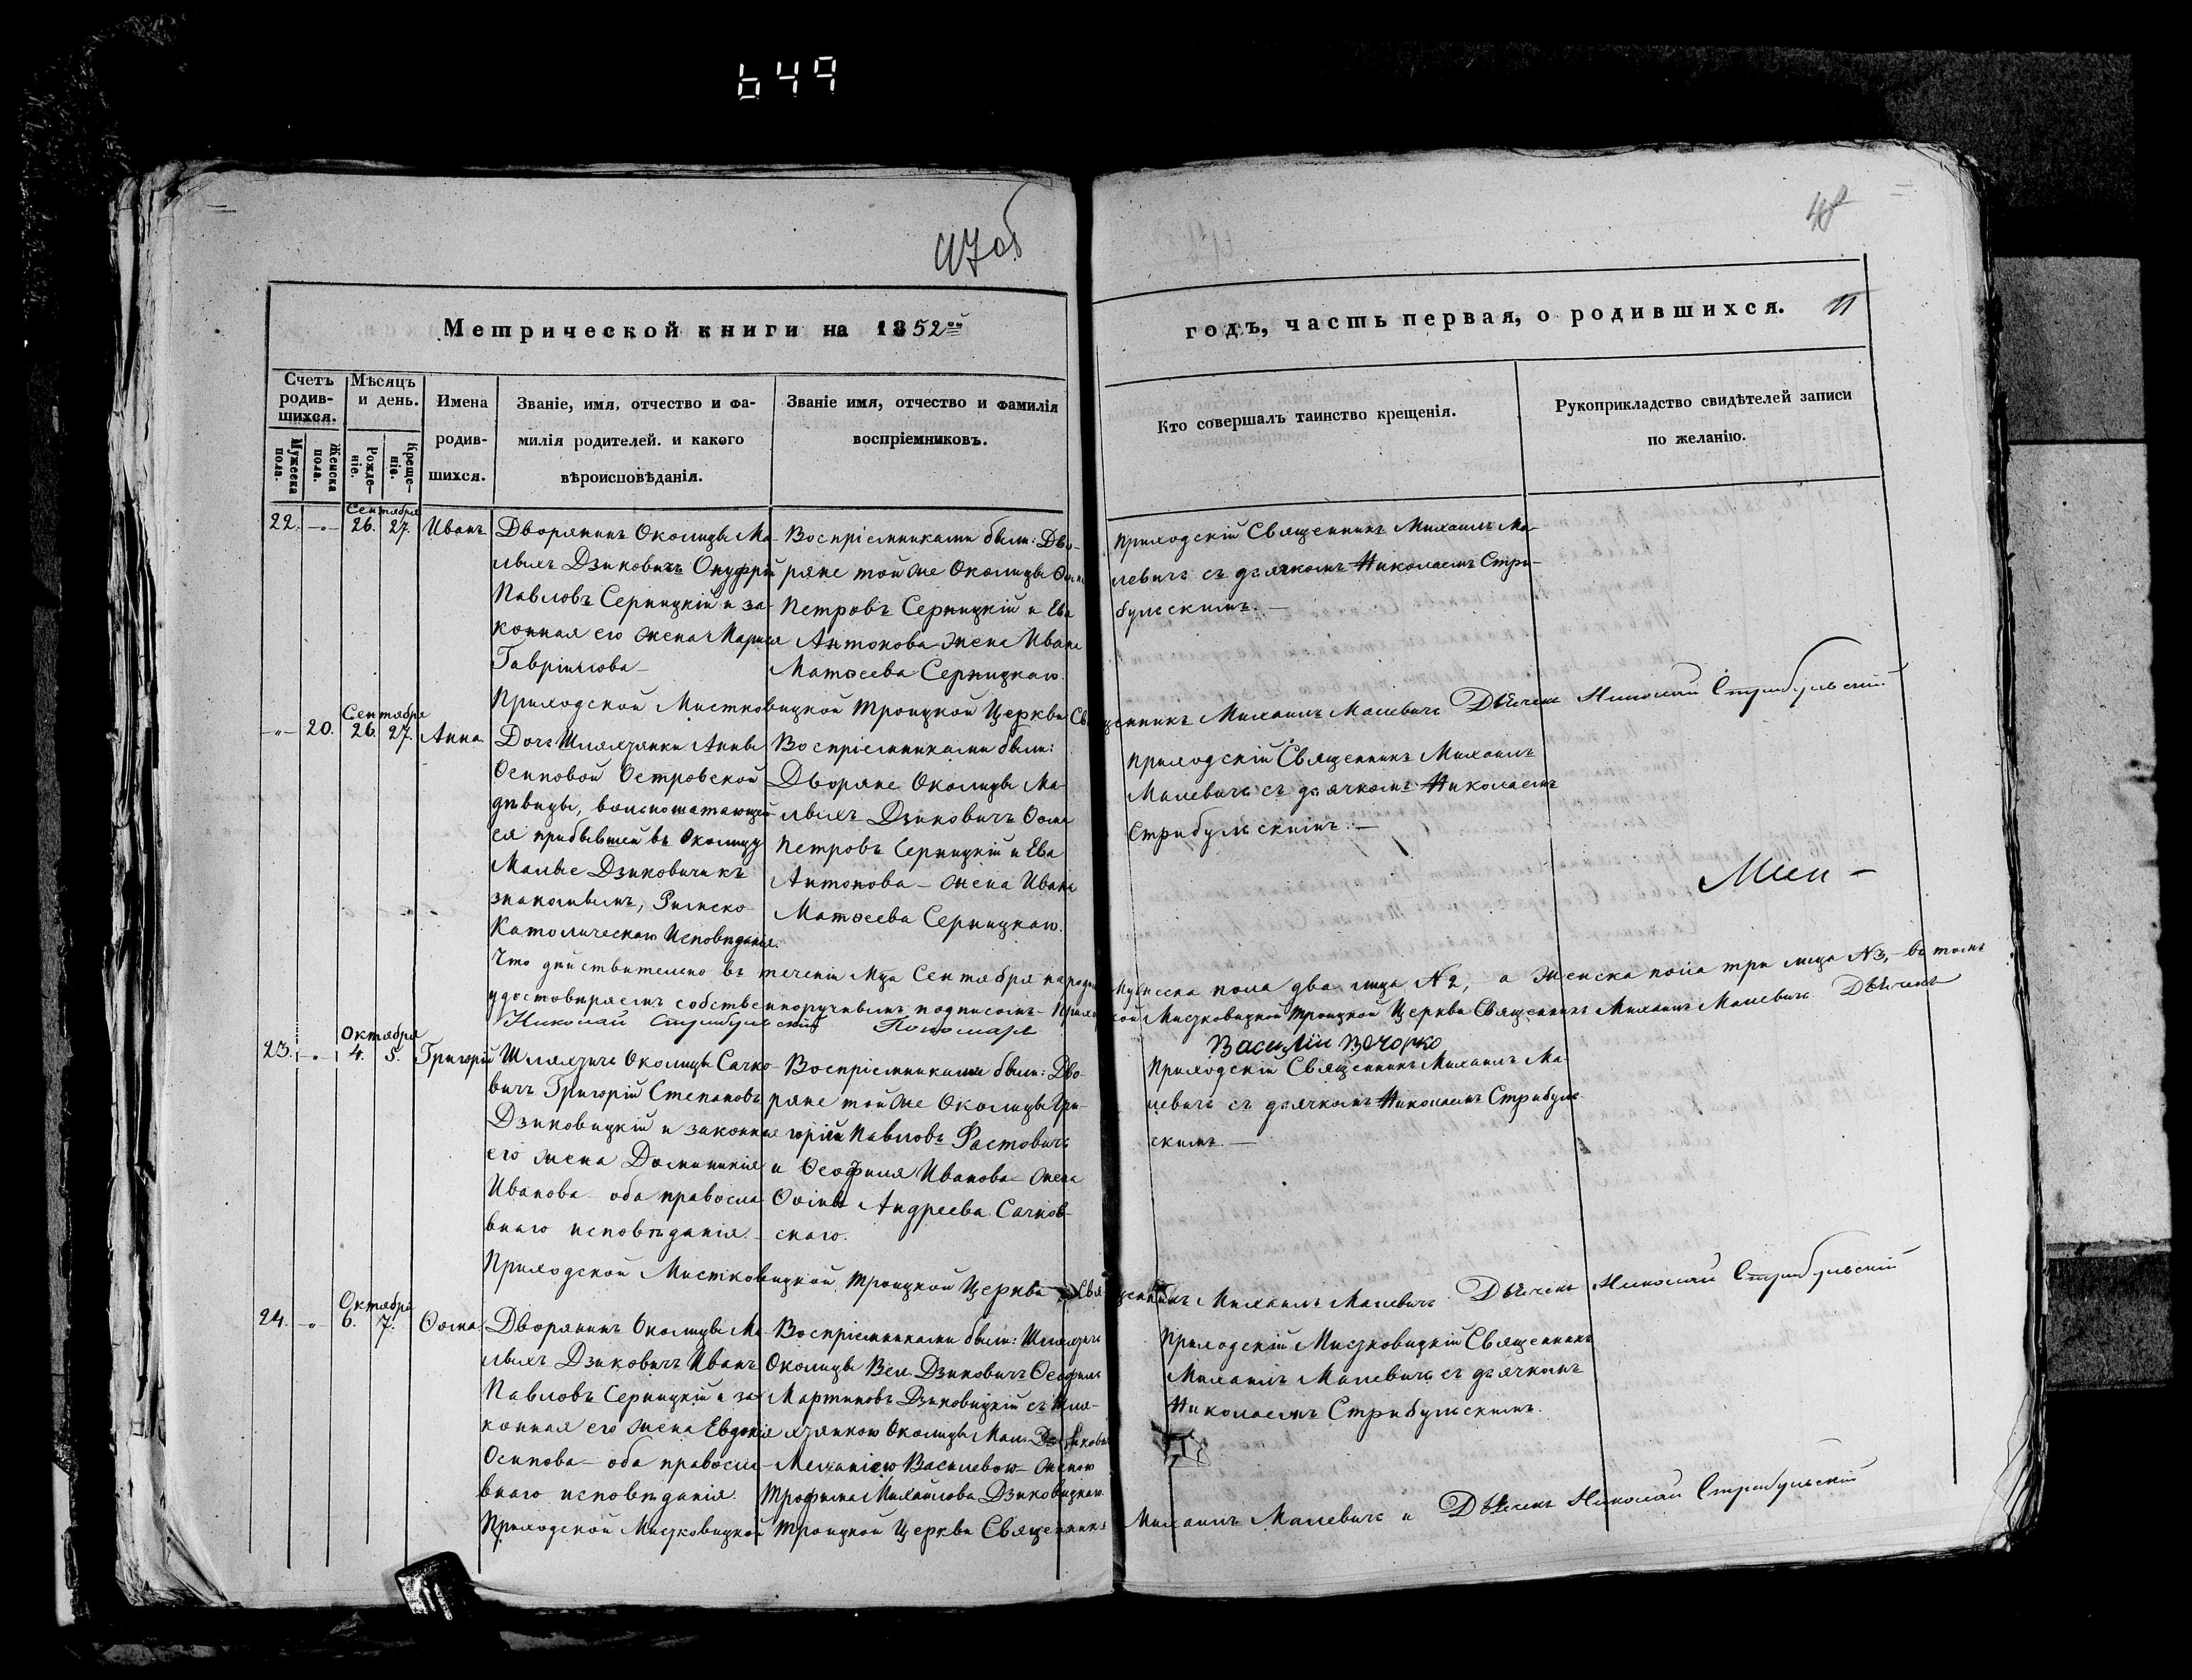 649
47об
48
Метрической книги на 1852ой
годъ, часть первая, о родившихся. 11
Счетъ родив-шихся.
Мужеска пола.
Женска пола.
Мѣсяцъ и день.
Рожде-ніе.
Креще-ніе.
Имена
родив-
шихся.
Званіе, имя, отчество и фа-
милія родителей. и какого
вѣроисповѣданія.
Званіе имя, отчество и фамилія
воспріемниковъ.
Кто совершалъ таинство крещенія.
Рукоприкладство свидѣтелей записи
по желанію.
Сентября
22. -„- 26. 27. Иванъ
Дворянинъ Околицы Ма-
лыхъ Дзиковичъ Онуфрій
Павловъ Серницкій и за-
конная его жена Марья
Гавріилова
Воспріемниками были: Дво-
ряне той же Околицы Ѳома
Петровъ Серницкій и Ева
Антонова жена Ивана
Матѳеева Серницкаго.
Приходскій Священникъ Михаилъ Ма-
левичъ съ дьячкомъ Николаемъ Стри-
бульскимъ.
Приходской Мистковицкой Троицкой Церкви Священникъ Михаилъ Малевичъ Дьячекъ Николай Стрибульскій
Сентября
-„- 20. 26. 27. Анна
Дочь Шляхтянки Анны
Осиповой Островской
дѣвицы,
ся прибывшей въ Околицу
Малые Дзиковичи къ
знакомымъ, Римско
Католическаго Исповѣданія.
Воспріемниками были:
Дворяне Околицы Ма-
лыхъ Дзиковичъ Ѳома
Петровъ Серницкій и Ева
Антонова - жена Ивана
Матѳеева Серницкаго.
Приходскій Священникъ Михаилъ
Малевичъ съ дьячкомъ Николаемъ
Стрибульскимъ.
Что дѣйствительно въ теченіи Мца Сентября мужеска пола два лица №2, а женска пола три лица №3, въ томъ
удостовѣряемъ собственноручнымъ подписомъ Мистковицкой Троицкой Церкви Священникъ Михаилъ Малевичъ Дьячекъ
Николай Стрибульскій Пономарь Василій Вечорко
Октября
23. -„- 4. 5. Григорій
Шляхтичъ Околицы Сачко-
вичъ Григорій Степановъ
Дзиковицкій и законная
его жена Доминикія
Иванова оба правосла
внаго исповѣданія.
Воспріемниками были: Дво-
ряне той же Околицы Гри-
горій Павловъ Фастовичъ
и Ѳеофиля Иванова жена
Андреева Сачков-
скаго.
Приходскій Священникъ Михаилъ Ма-
левичъ съ дьячкомъ Николаемъ Стрибуль-
скимъ.
Приходской Мистковицкой Троицкой Церкви Священникъ Михаилъ Малевичъ Дьячекъ Николай Стрибульскій
Октября
24. -„- 6. 7. Ѳома
Дворянинъ Околицы Ма-
лыхъ Дзиковичъ Иванъ
Павловъ Серницкій и за-
конная его жена Евдокія
Осипова - оба правосла-
внаго исповѣданія.
Воспріемниками были: Шляхтичъ
Околицы Вел. Дзиковичъ Ѳеофилъ
Мартиновъ Дзиковицкій съ Шля-
хтянкою Околицы Мал. Дзиковичъ
Меланіею Василевою женою
Трофима Михайлова Дзиковицкаго.
Приходскій Мистковицкій Священникъ
Михаилъ Малевичъ съ дьячкомъ
Николаемъ Стрибульскимъ.
Приходской Мистковицкой Троицкой Церкви Священникъ Михаилъ Малевичъ и Дьячекъ Николай Стрибульскій